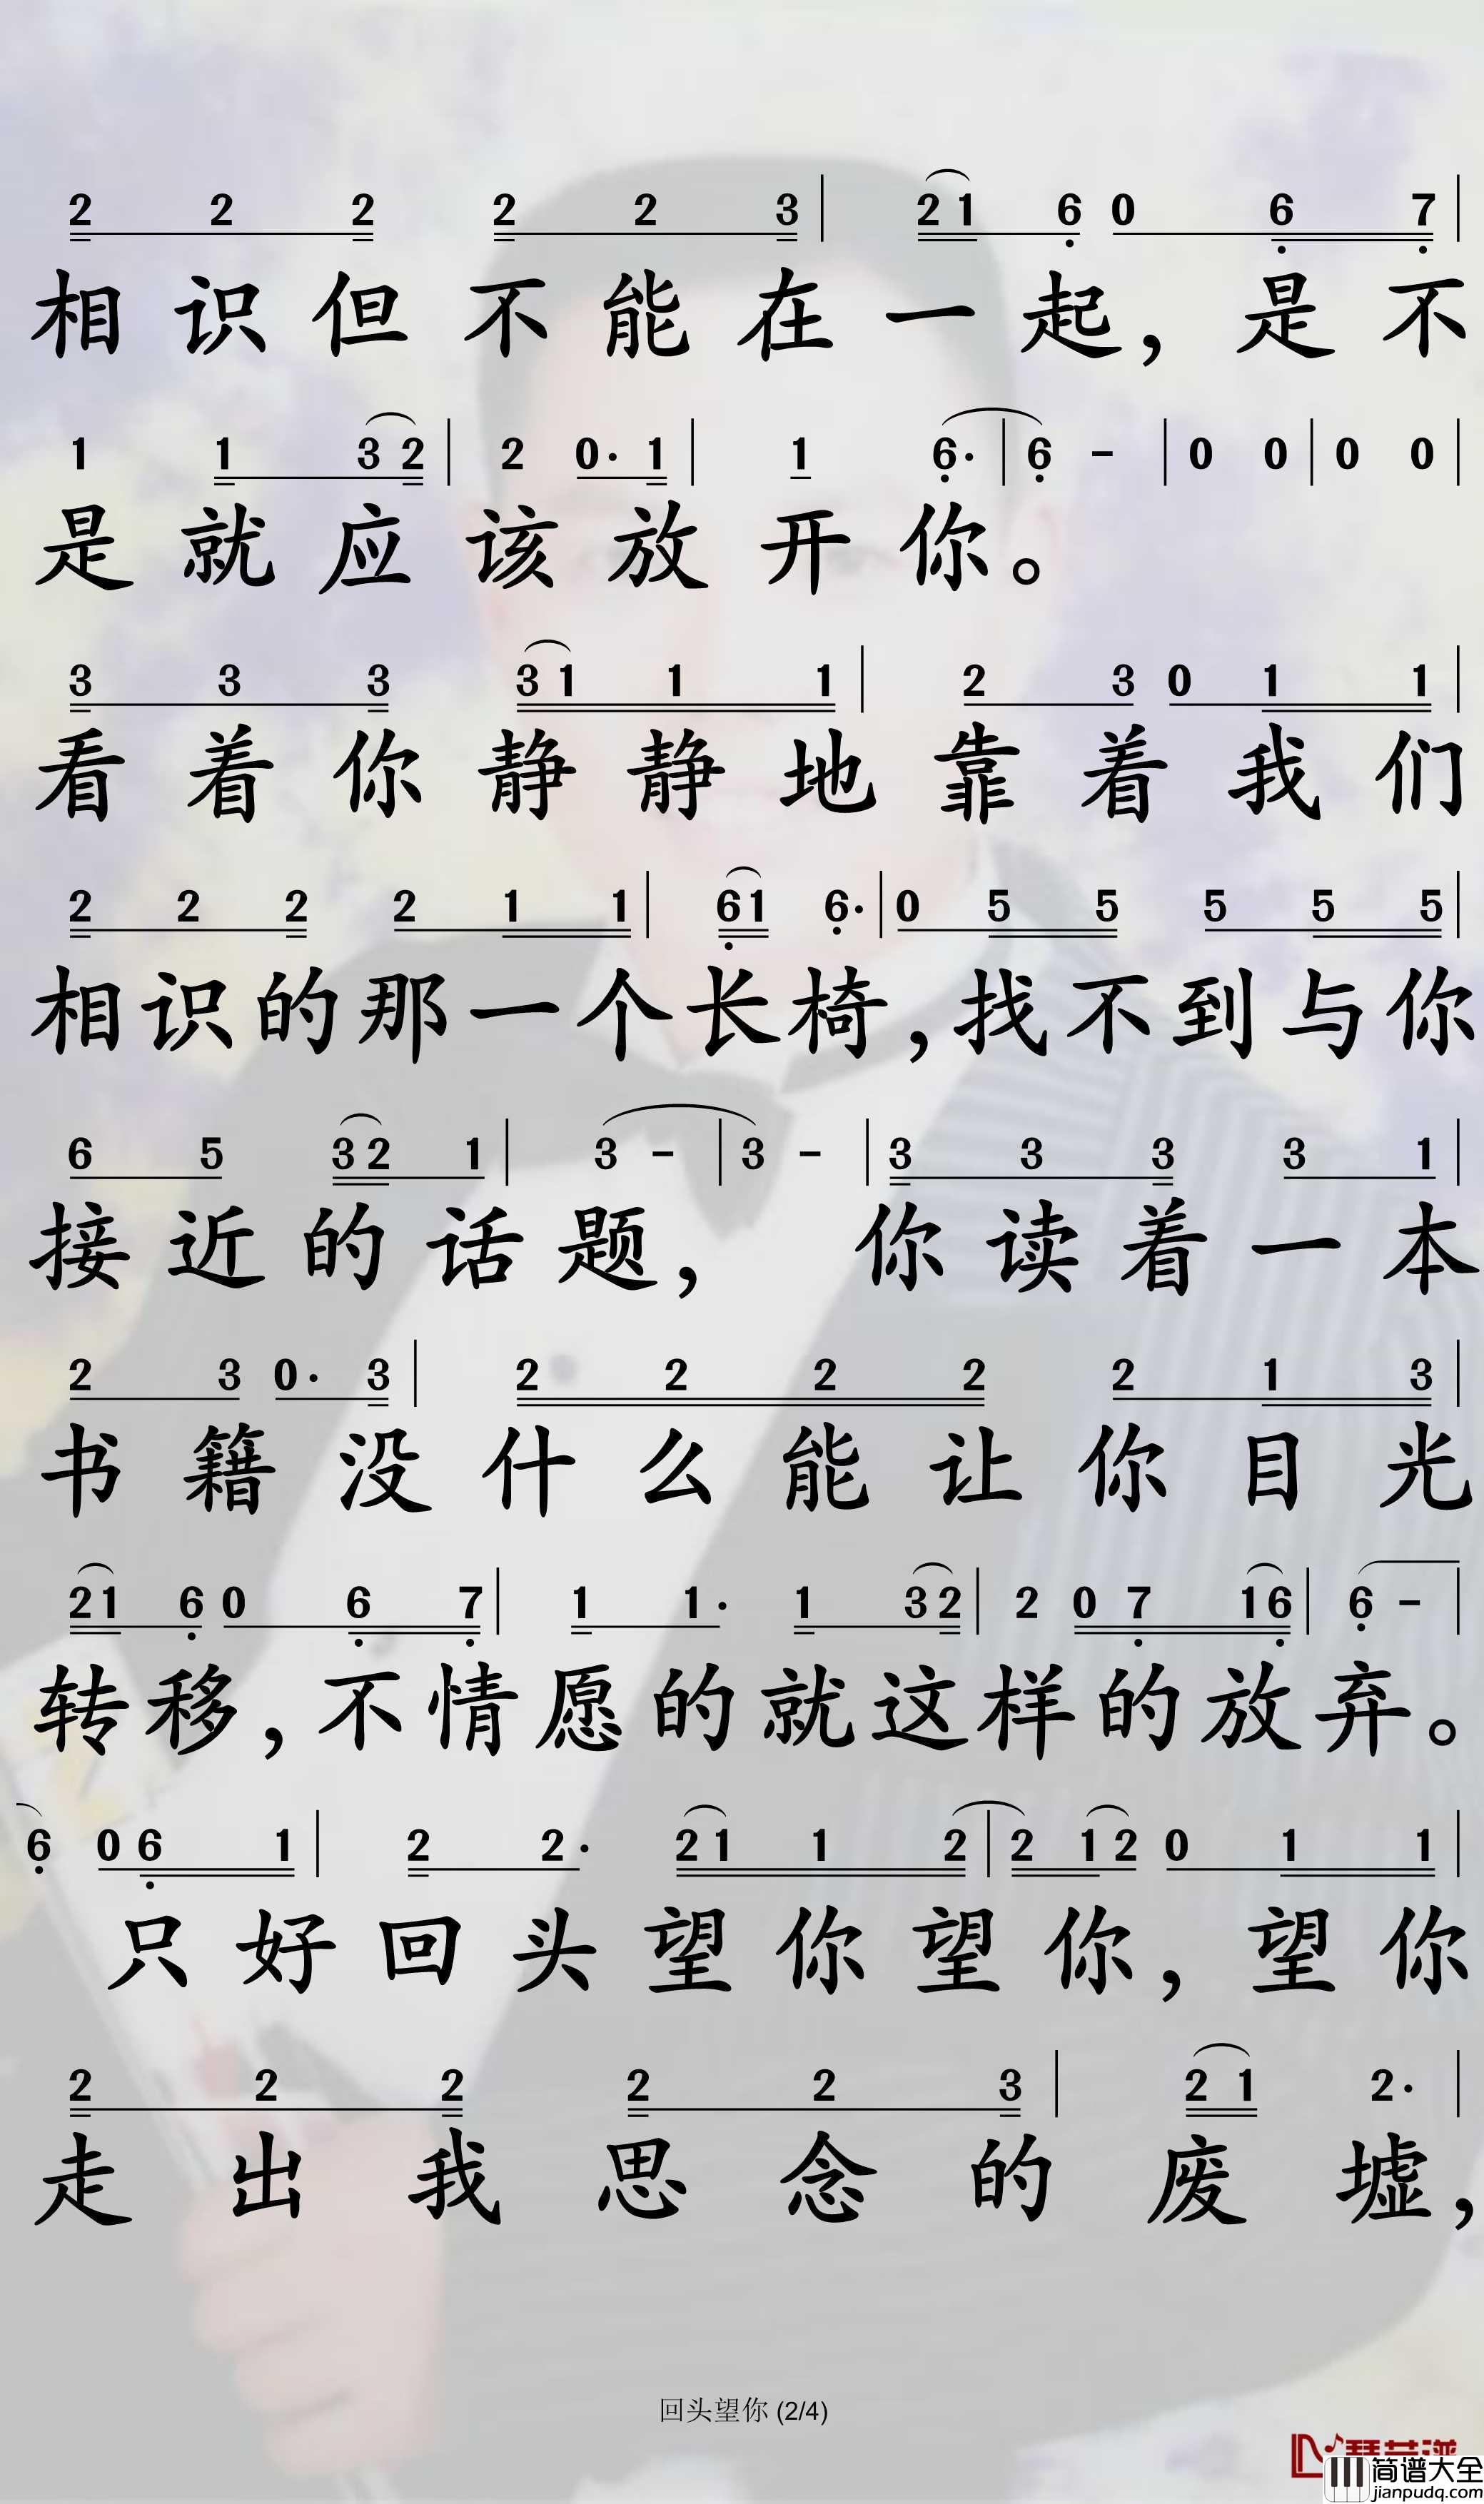 2 2 2 2 2 3 | 2 1 6 0 6 7 |
相识但不能在一起，是不
1 1 3 2 | 2 0· 1 | 1 6· | 6 - | 0 0 | 0 0 |
是就应该放开你。
3 3 3 3 1 1 1 | 2 3 0 1 1 |
看着你静静地靠着我们
2 2 2 2 1 1 | 6 1 6· | 0 5 5 5 5 5 |
相识的那一个长椅，找不到与你
6 5 3 2 1 | 3 - | 3 - | 3 3 3 3 1 |
接近的话题，你读着一本
2 3 0· 3 | 2 2 2 2 2 1 3 |
书籍没什么能让你目光
2 1 6 0 6 7 | 1 1· 1 3 2 | 2 0 7 1 6 | 6 - |
转移，不情愿的就这样的放弃。
6 0 6 1 | 2 2· 2 1 1 2 | 2 1 2 0 1 1 |
只好回头望你望你，望你
2 2 2 2 2 3 | 2 1 2· |
走出我思念的废墟，
回头望你 (2/4)
简谱大全
jianpudq.com